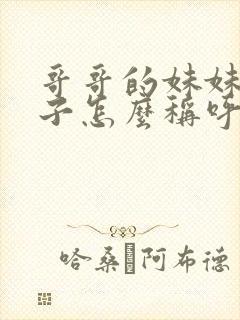 哥哥的妹妹
子怎麼稱呼
哈桑·阿布德